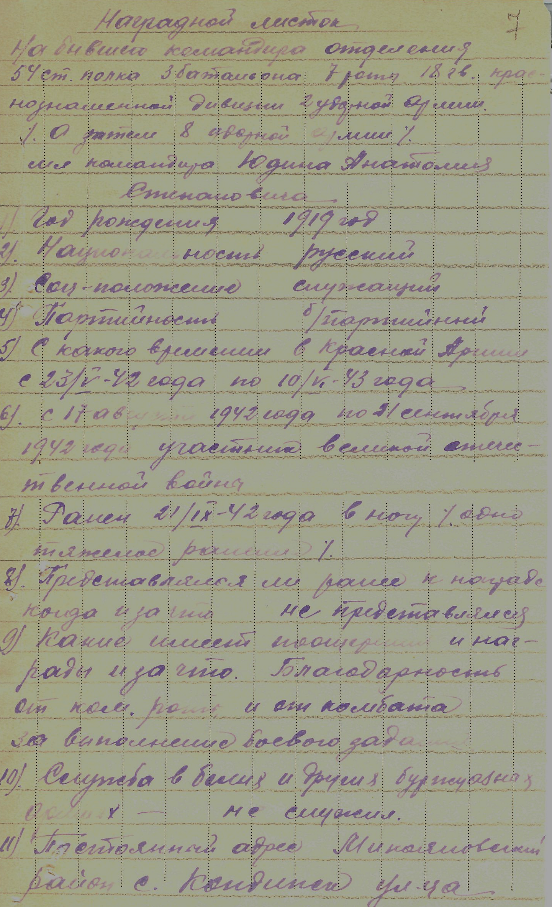 7
Наградной листок
На бывшего командира отделения
54 ст. полка 3 батальона 7 роты 18 гв. крас-
нознаменной дивизии 2 ударной армии.
/. О затем 8 ударной армии /.
мл командира Юдина Анатолия
Степановича
1) Год рождения 1919 год
2). Национальность русский
3) Соц-положение служащий
4) Партийность б/партийный
5) С какого времени в Красной Армии
с 23/V-42 года по 10/VI-43 года
6). с 17 августа 1942 года по 21 сентября
1942 года участник великой отече-
ственной война
7) Ранен 21/IX-42 года в ногу /. одно
тяжелое ранение /.
8). Представлялся ли ранее к награде
когда и за что не представлялся
9) Какие имеет поощрения и наг-
рады и за что. Благодарность
от ком. роты и от комбата
за выполнение боевого зада
10). Служба в белых и других буржуазных
— не служил.
11) Постоянный адрес
район с. Кондинск ул-ца